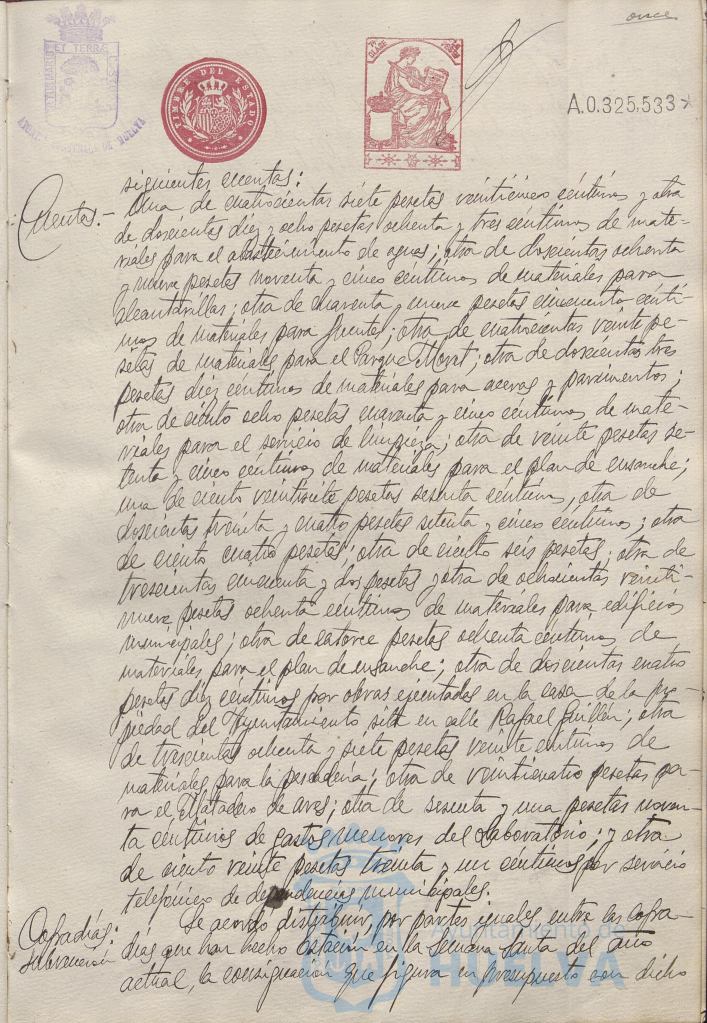 once
ET TERRÆ
AYUNTAMIENTO DE HUELVA
TIMBRE DEL ESTADO
7ª CLASE
A.0.325.533
siguientes cuentas:
Cuentas.- Una de cuatrocientas siete pesetas veinticinco céntimos y otra
de doscientas diez y ocho pesetas ochenta y tres céntimos de mate-
riales para el abastecimiento de aguas; otra de doscientas ochenta
y nueve pesetas noventa y cinco céntimos de materiales para
alcantarillas; otra de cuarenta y nueve pesetas cincuenta cénti-
mos de materiales para fuentes; otra de cuatrocientas veinte pe-
setas de materiales para el Parque Moret; otra de doscientas tres
pesetas diez céntimos de materiales para aceras y pavimentos;
otra de ciento ocho pesetas cuarenta y cinco céntimos de mate-
riales para el servicio de limpieza; otra de veinte pesetas se-
tenta y cinco céntimos de materiales para el plan de ensanche;
una de ciento veintisiete pesetas sesenta céntimos, otra de
doscientas treinta y cuatro pesetas setenta y cinco céntimos; otra
de ciento cuatro pesetas; otra de ciento seis pesetas; otra de
trescientas cincuenta y dos pesetas y otra de ochocientas veinti-
nueve pesetas ochenta céntimos de materiales para edificios
municipales; otra de catorce pesetas ochenta céntimos de
materiales para el plan de ensanche; otra de doscientas cuatro
pesetas diez céntimos por obras ejecutadas en la casa de la pro-
piedad del Ayuntamiento sita en calle Rafael Guillén; otra
de trescientas ochenta y siete pesetas veinte céntimos de
materiales para la pescadería; otra de veinticuatro pesetas pa-
ra el Matadero de aves; otra de sesenta y una pesetas noven-
ta céntimos de gastos menores del Laboratorio; y otra
de ciento veinte pesetas treinta y un céntimos por servicio
telefónico de dependencias municipales.
Cofradías: Se acordó distribuir, por partes iguales, entre las cofra-
subvención días que han hecho estación en la Semana Santa del año
actual, la consignación que figura en Presupuesto con dicho
Ayuntamiento de
HUELVA